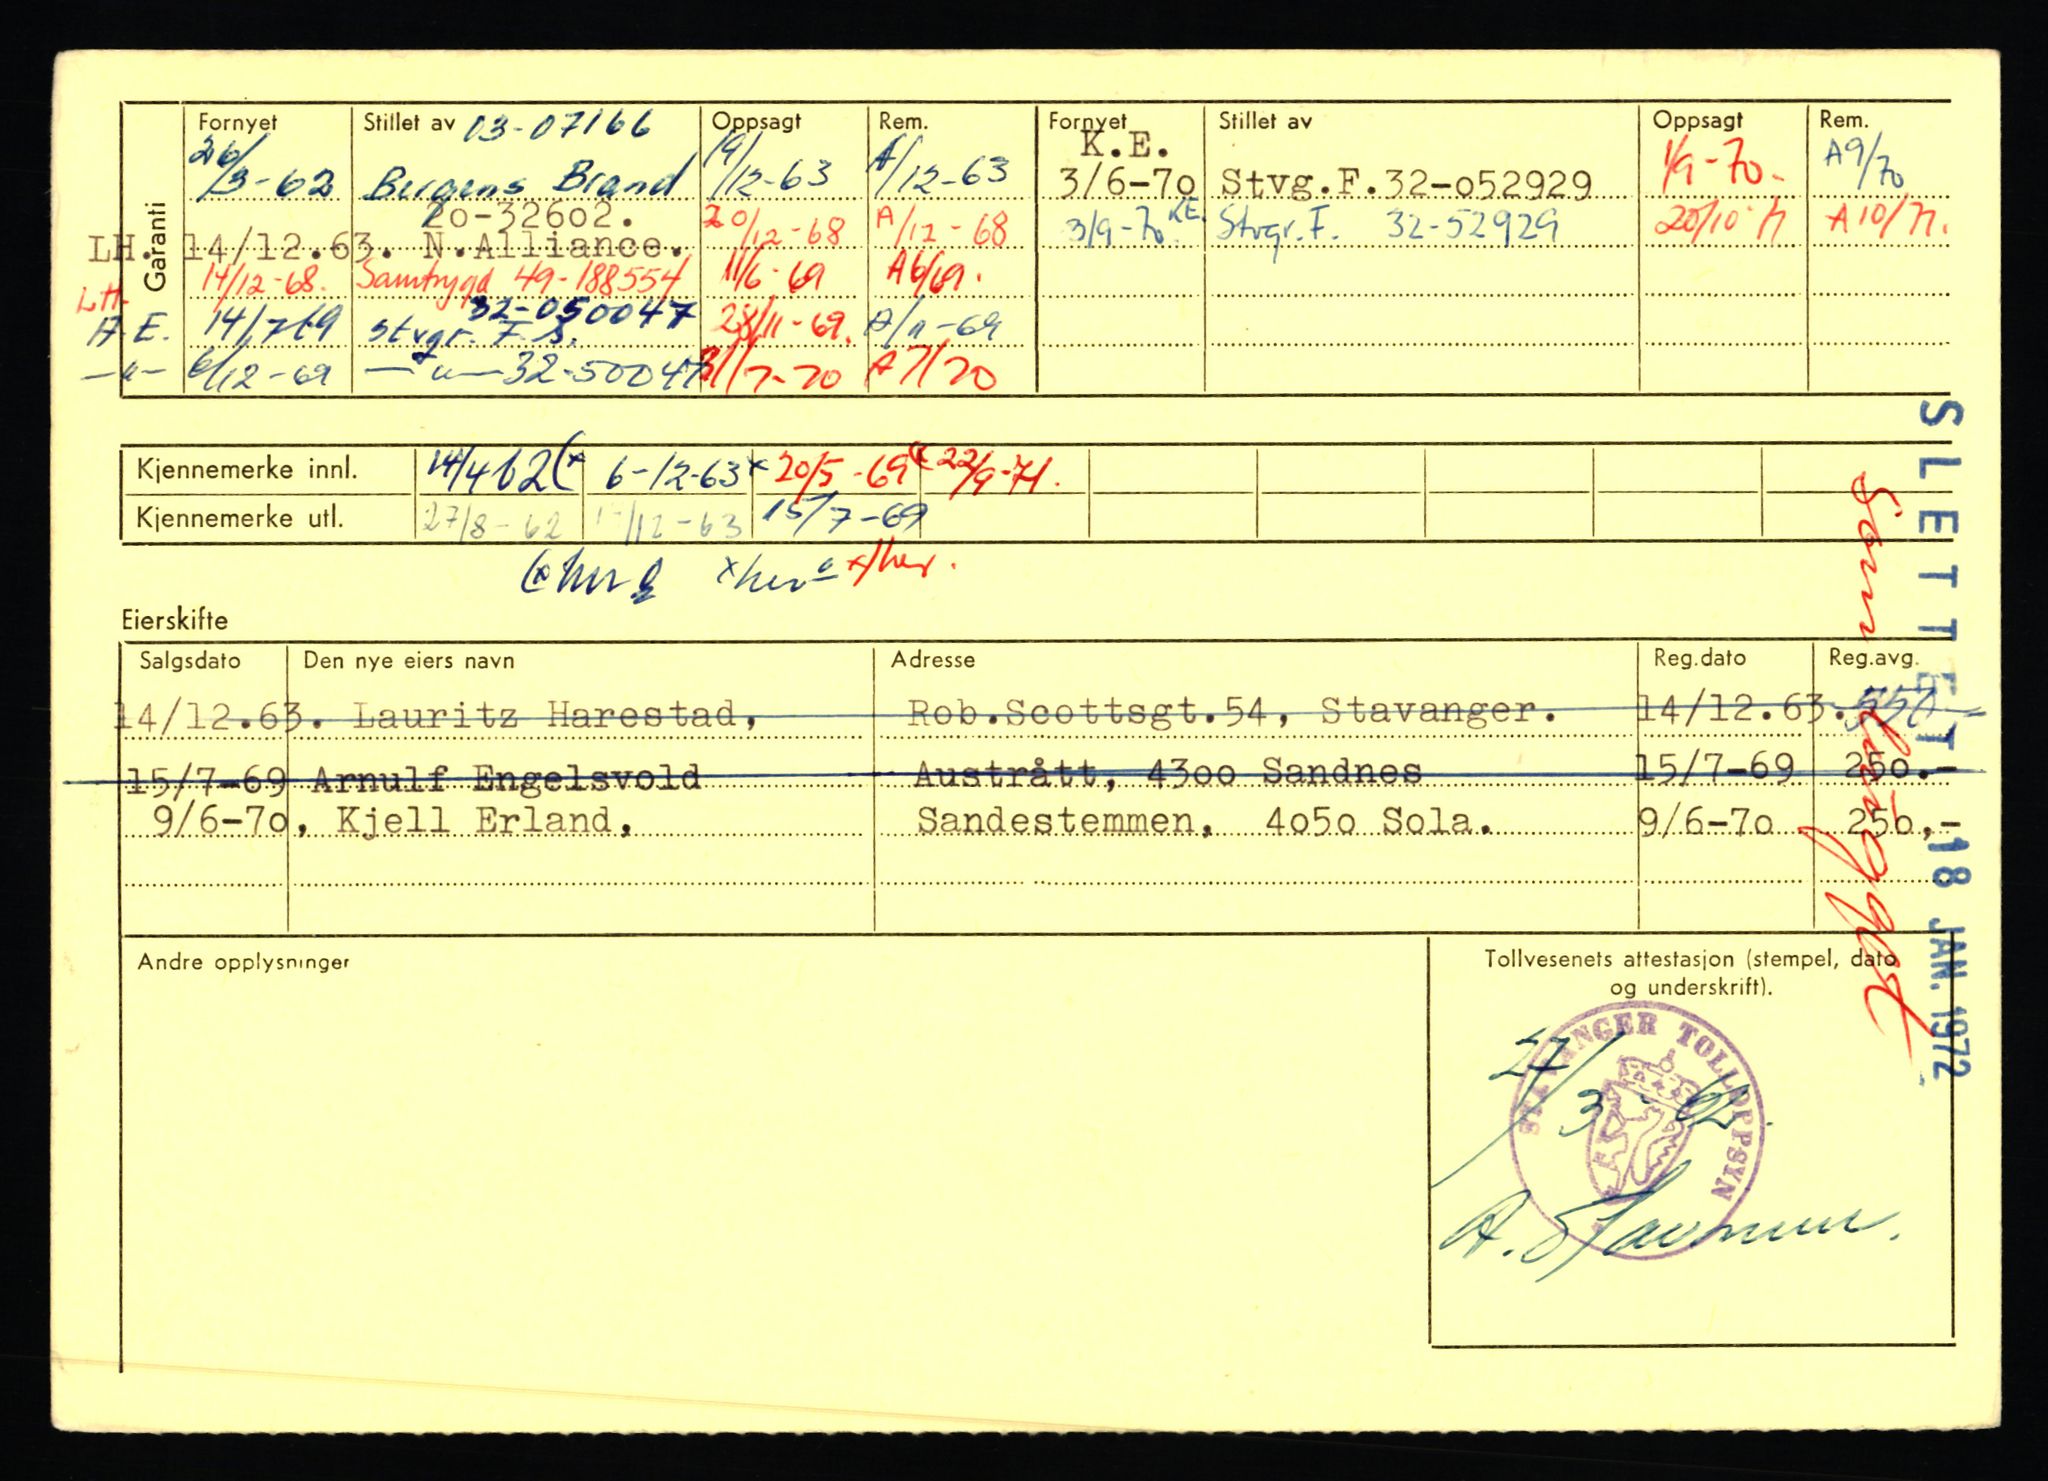 Garanti
Fornyet Stillet av 03-07166 Oppsagt Rem. Fornyet Stillet av Oppsagt Rem.
K.E.
26/3-62 Bergens Brand 19/12-63 A/12-63 3/6-70 Stvg.F.32-052929 1/9-70. A9/70
20-32602.
LH. 14/12.63. N.Alliance. 20/12-68 A/12-68 3/9-70 KE. Stvgr.F. 32-52929 20/10-71 A10/71.
LH. 14/12-68. Samtrygd 49-188554 11/6-69 A6/69.
32-050047
A E. 14/7-69 Stvgr. F.S. 28/11-69. A/11-69
—"— 6/12-69 —"— 32-50047 31/7-70 A7/70
Kjennemerke innl. 14/4 62 (x 6-12-63 x 20/5-69 (x 22/9-71.
Kjennemerke utl. 27/8-62 /12-63 15/7-69
x her x/her.
Eierskifte
Salgsdato Den nye eiers navn Adresse Reg.dato Reg.avg.
14/12.63. Lauritz Harestad, Rob.Scottsgt.54, Stavanger. 14/12.63. 550
15/7-69 Arnulf Engelsvold Austrått, 4300 Sandnes 15/7-69 250.-
9/6-70, Kjell Erland, Sandestemmen, 4050 Sola. 9/6-70 250,-
SLETTET
18 JAN. 1972
Som
Andre opplysninger
Tollvesenets attestasjon (stempel, dato
og underskrift).
STAVANGER TOLLOPPSYN
27/3-62.